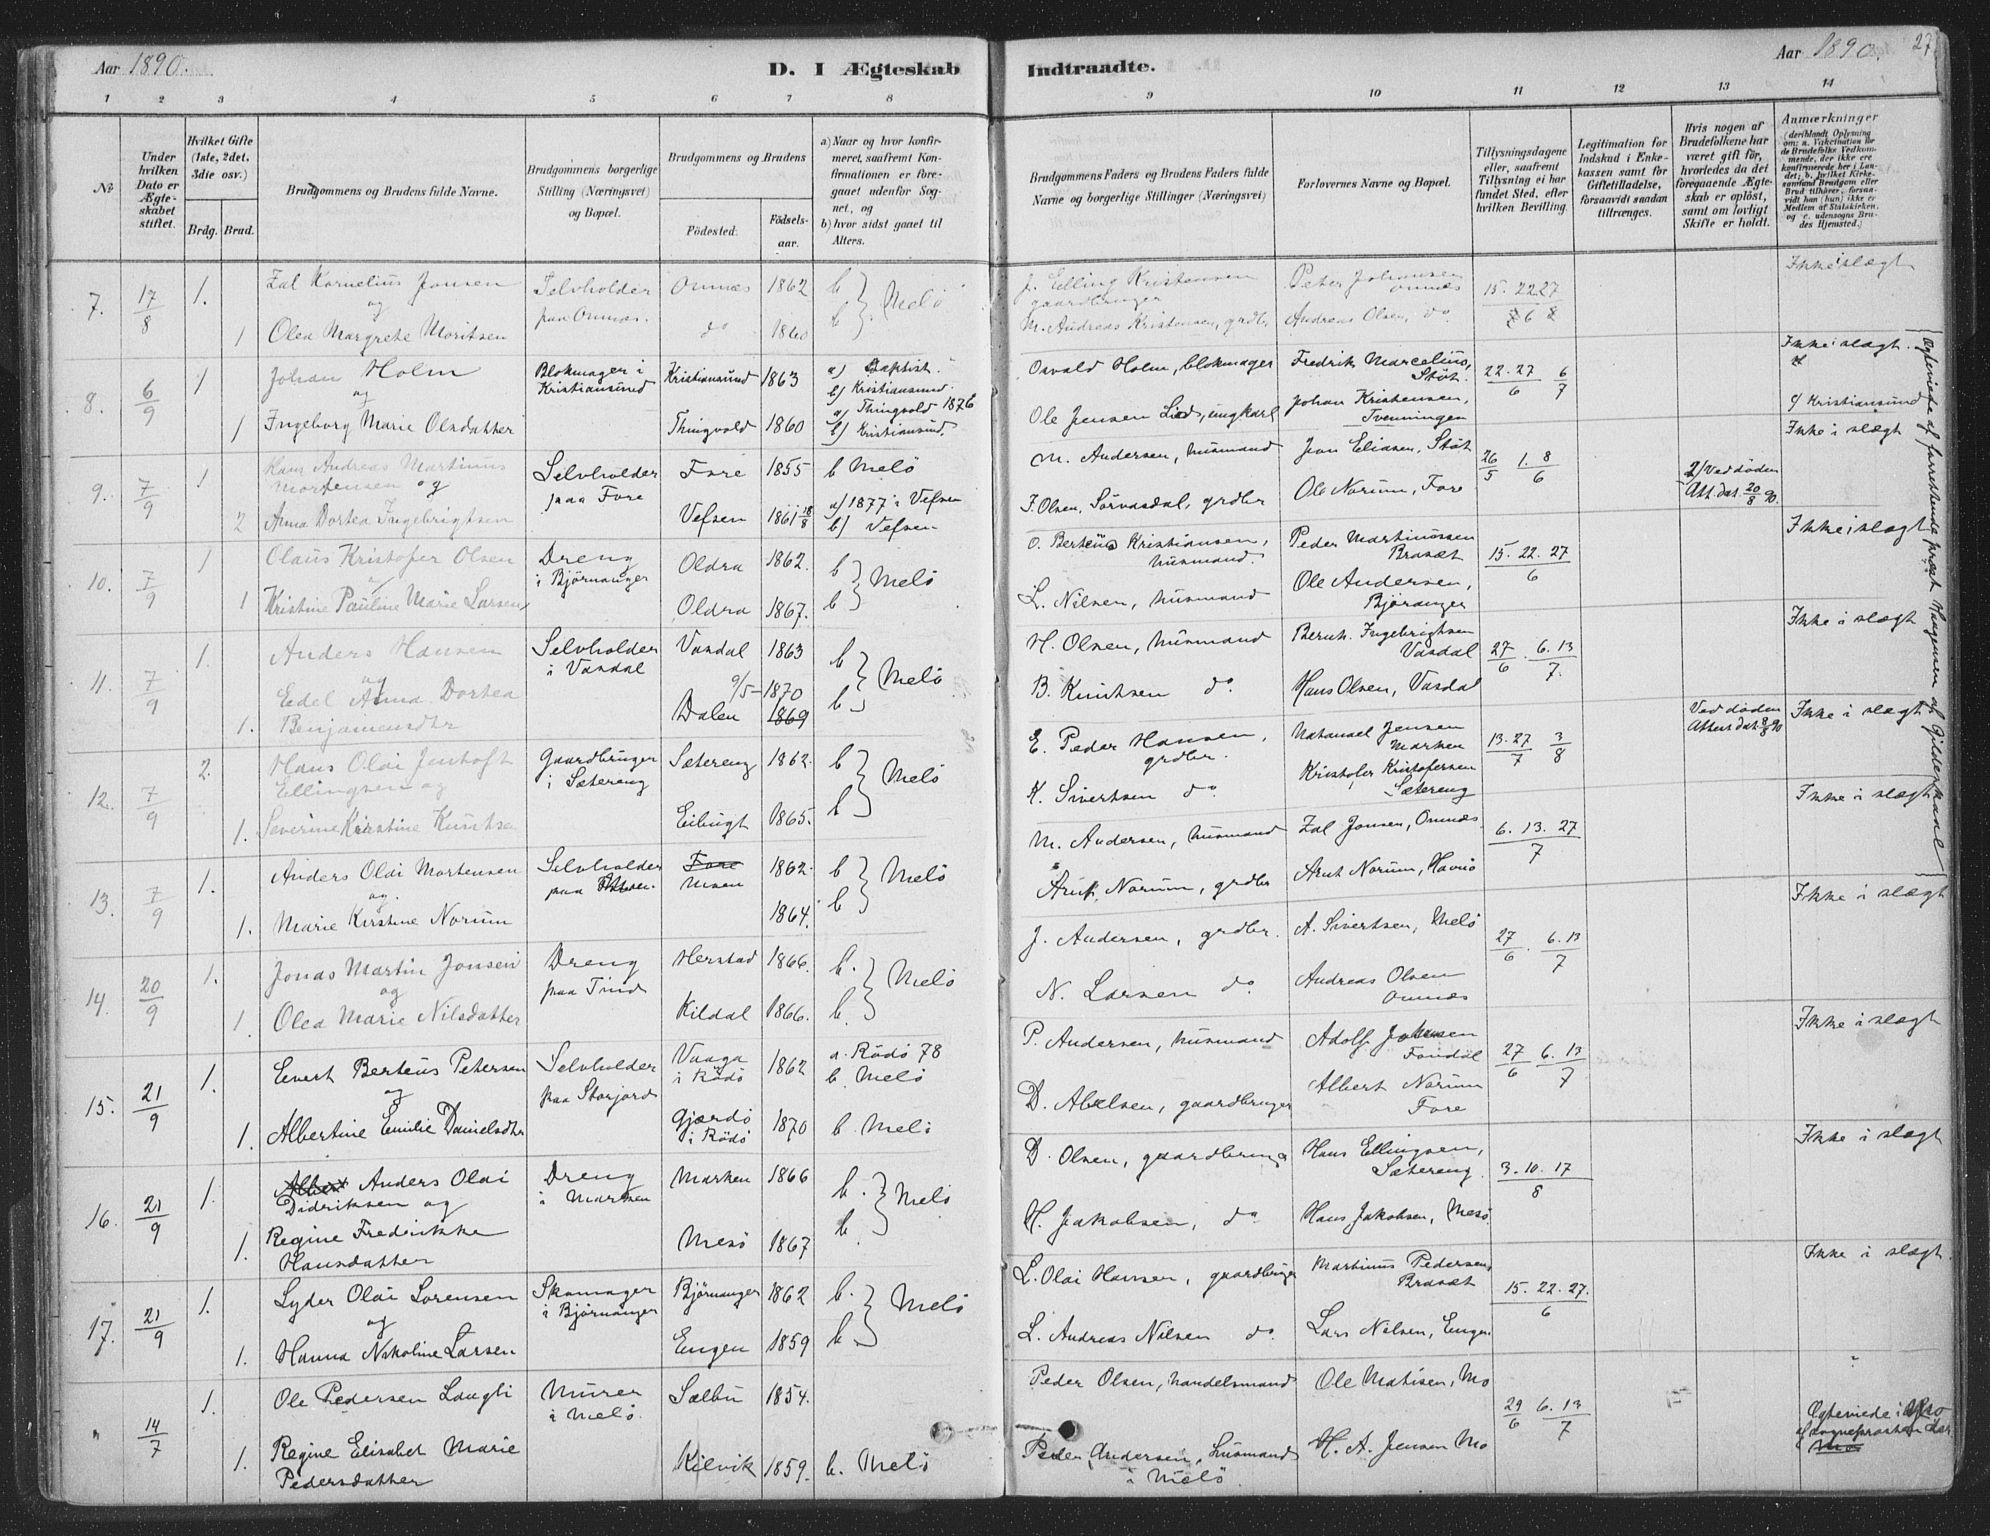 Aar 1890.
D. I Ægteskab Indtraadte.
Aar 1890. 27
1 2 3 4 5 6 7 8 9 10 11 12 13 14
№
Under hvilken Dato er Ægteskabet stiftet.
Hvilket Gifte (1ste, 2det, 3die osv.)
Brdg. Brud.
Brudgommens og Brudens fulde Navne.
Brudgommens borgerlige Stilling (Næringsvei) og Bopæl.
Brudgommens og Brudens
Födested. Födselsaar.
a) Naar og hvor konfirmeret, saafremt Konfirmationen er foregaaet udenfor Sognet, og
b) hvor sidst gaaet til Alters.
Brudgommens Faders og Brudens Faders fulde Navne og borgerlige Stillinger (Næringsvei)
Forlovernes Navne og Bopæl.
Tillysningsdagene eller, saafremt Tillysning ei har fundet Sted, efter hvilken Bevilling.
Legitimation for Indskud i Enkekassen samt for Giftetilladelse, forsaavidt saadan tiltrænges.
Hvis nogen af Brudefolkene har været gift för, hvorledes da det foregaaende Ægteskab er oplöst, samt om lovligt Skifte er holdt.
Anmærkninger
7. 17/8 1. Zal Kornelius Jonsen Selvholder Onnæs 1862 b Melö J. Elling Kristensen Peter Johansen 15. 22 27 Ikke i slægt
og paa Onnæs. gaardbruger Onnæs
1 Olea Margrete Moritsen do 1860 b M. Andreas Kristensen, grdbr. Andreas Olsen, do.
8. 6/9 1 Johan Holm Blokmager i Kristiansund 1863 a) Baptist. Osvald Holm, blokmager Fredrik Marcelius, Stöt. 22. 27/6 6/7 Ikke i slægt.
og Kristiansund b) Kristiansund
1 Ingeborg Marie Olsdatter Thingvold 1860 a) Thingvold 1876 Ole Jensen Lied, ungkarl Johan Kristensen, Tvenningen c/ Kristiansund
b) Kristiansund.
9. 7/9 1 Hans Andreas Martinus Selvholder Fore 1855 b Melö M. Andersen, husmand Jon Eliasen, Stöt 26/5 1. 8/6 Ikke i slægt
Mortensen og paa Fore 2/ Ved döden
2 Anna Dortea Ingebrigtsen Vefsen 1861 18/8 a) 1877 i Vefsen J. Olsen, Sörvasdal, grdbr Ole Norum, Fore Att. dat. 20/8 90.
b) Vefsen
10. 7/9 1 Olaus Kristofer Olsen Dreng Oldra 1862. b Melö O. Berteus Kristiansen, husmand. Peder Martinussen Brasæt 15. 22. 27/6 Ikke i slægt
i Björnanger
1 Kristine Pauline Marie Larsen Oldra 1867. b L. Nilsen, husmand Ole Andersen, Björanger
11. 7/9 1. Anders Hansen Selvholder Vasdal 1863 b Melö H. Olsen, husmand Bernh. Ingebrigtsen Vasdal 27/6. 6. 13/7. Ikke i slægt
og i Vasdal
1. Edel Anna Dortea 9/5 1870
Benjaminsdtr Dalen 1869 b B. Knutsen do. Hans Olsen, Vasdal
12. 7/9 2. Hans Olai Jentoft Gaardbruger Sætereng 1862. b Melö E. Peder Hansen, grdbr. Natanael Jensen Marken 13. 27/7 3/8 Ved döden Ikke i slægt
Ellingsen og i Sætereng
1. Severine Kirstine Knutsen 1865. b K. Sivertsen do. Kristofer Kristofersen Sætereng
13. 7/9 1. Anders Olai Mortensen Selvholder Fore 1862. b Melö M. Andersen, husmand Zal Jonsen, Onnæs 6. 13. 27/7 Ikke i slægt
og. paa
1. Marie Kirstine Norum 1864. b Arnt Norum, grdbr Arnt Norum, Havnö
14. 20/9 1. Jonas Martin Jonsen Dreng Herstad 1866. b. Melö J. Andersen, grdbr. A. Sivertsen, Melö 27/6. 6. 13/7 Ikke i slægt
og paa Tind
1. Olea Marie Nilsdatter Kildal 1866. b. N. Larsen do Andreas Olsen Onnæs
15. 21/9 1. Evert Berteus Petersen Selvholder Vaaga i Rödö 1862 a. Rödö 78 P. Andersen, husmand Adolf Johansen Fondal 27/6 6. 13/7 Ikke i slægt
og paa Storjord b. Melö
1. Albertine Emilie Danielsdtr Gjærdö i Rödö 1870 b. Melö D. Abelsen, gaardbruger Albert Norum Fore
16. 21/9 1. Albert Anders Olai Dreng Marken 1866 b. Melö D. Olsen, gaardbruger Hans Ellingsen, Sætereng. 3. 10. 17/8 Ikke i slægt
Didriksen og i Marken
1. Regine Fredrikke Hansdatter Mesö 1867 b H. Jakobsen, do Hans Jakobsen, Mesö.
17. 21/9 1. Lyder Olai Sorensen Skomager Björnanger 1862 b. Melö L. Olai Hansen, gaardbruger Martinus Pedersen, Brasæt 15. 22. 27./6 Ikke i slægt.
og i Björnanger
1. Hanna Nikoline Larsen Engen 1859 b L. Andreas Nilsen do. Lars Nilsen, Engen
" 14/7 1. Ole Pedersen Langli Murer Selbu 1854. Peder Olsen, handelsmand Ole Matisen, Mo 29/6 6. 13/7
i Melö. Ægteviede i
1. Regine Elisabet Marie Kilvik 1859. b. Melö Peder Andersen, husmand H. A. Jensen Mo
Pedersdatter i Melö.
Ægteviede af forrettende præst Haagensen af Gildeskaal